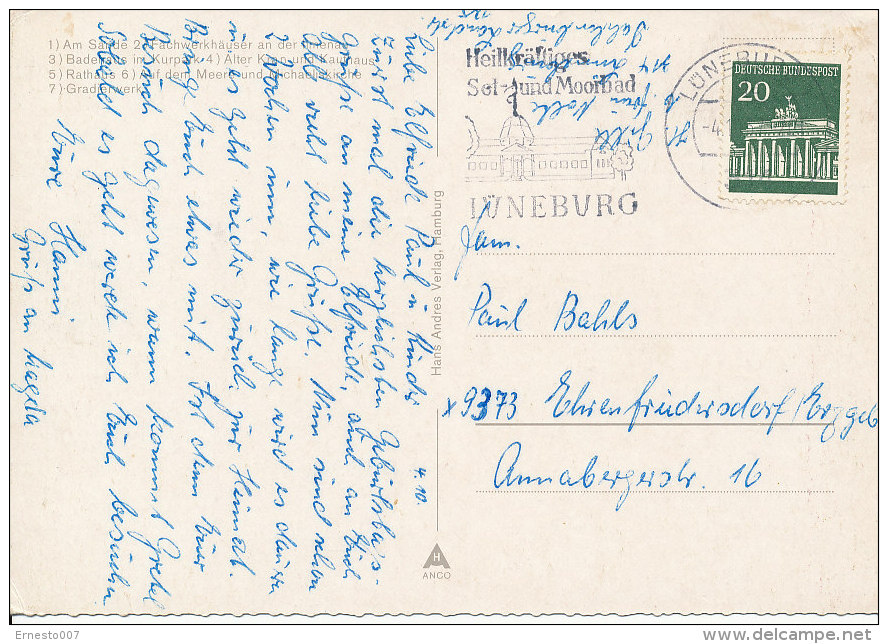 1) Am Sande 2) Fachwerkhäuser an der Ilmenau
3) Badehaus im Kurpark 4) Alter Kran und Kaufhaus
5) Rathaus 6) Auf dem Meere und Michaeliskirche
7) Gradierwerk
4.10.
Liebe Elfriede Paul u. Kinder
Zuerst mal die herzlichsten Geburtstags-
grüße an meine Elfriede, auch an Euch
alle viele liebe Grüße. Nun sind schon
2 Wochen um, wie lange wird es dauern
u. es geht wieder zurück zur Heimat.
Bringe Euch etwas mit. Ist denn Euer
Besuch dagewesen, wann kommt Gretel
Sobald es geht werde ich Euch besuchen
Eure Hanni
Grüße an Magda
Hans Andres Verlag, Hamburg
H
ANCO
Heilkräftiges
Sol- und Moorbad
LÜNEBURG
LÜNEBURG
DEUTSCHE BUNDESPOST
20
Fam.
Paul Bahls
x 9373 Ehrenfriedersdorf/Erzgeb
Annabergerstr. 16
Ernesto007
delcampe.net